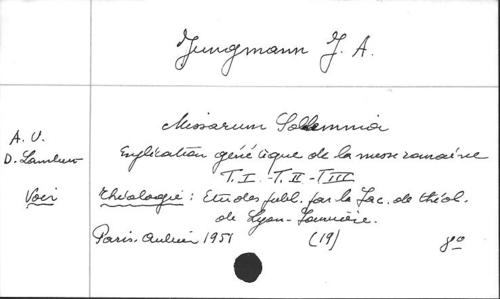 Jungmann J. A.
Missarum Sollemnia
A. V.
Explication génétique de la messe romaine
D. Lambert
T. I - T. II - T III
Voir
Théologie : Etudes publ. par la Fac. de théol.
de Lyon-Fourvière.
Paris. Aubier 1951 (19) 8º